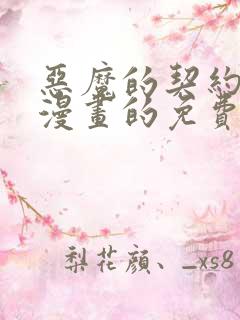 惡魔的契約
漫畫的免費
梨花顔、_xs8